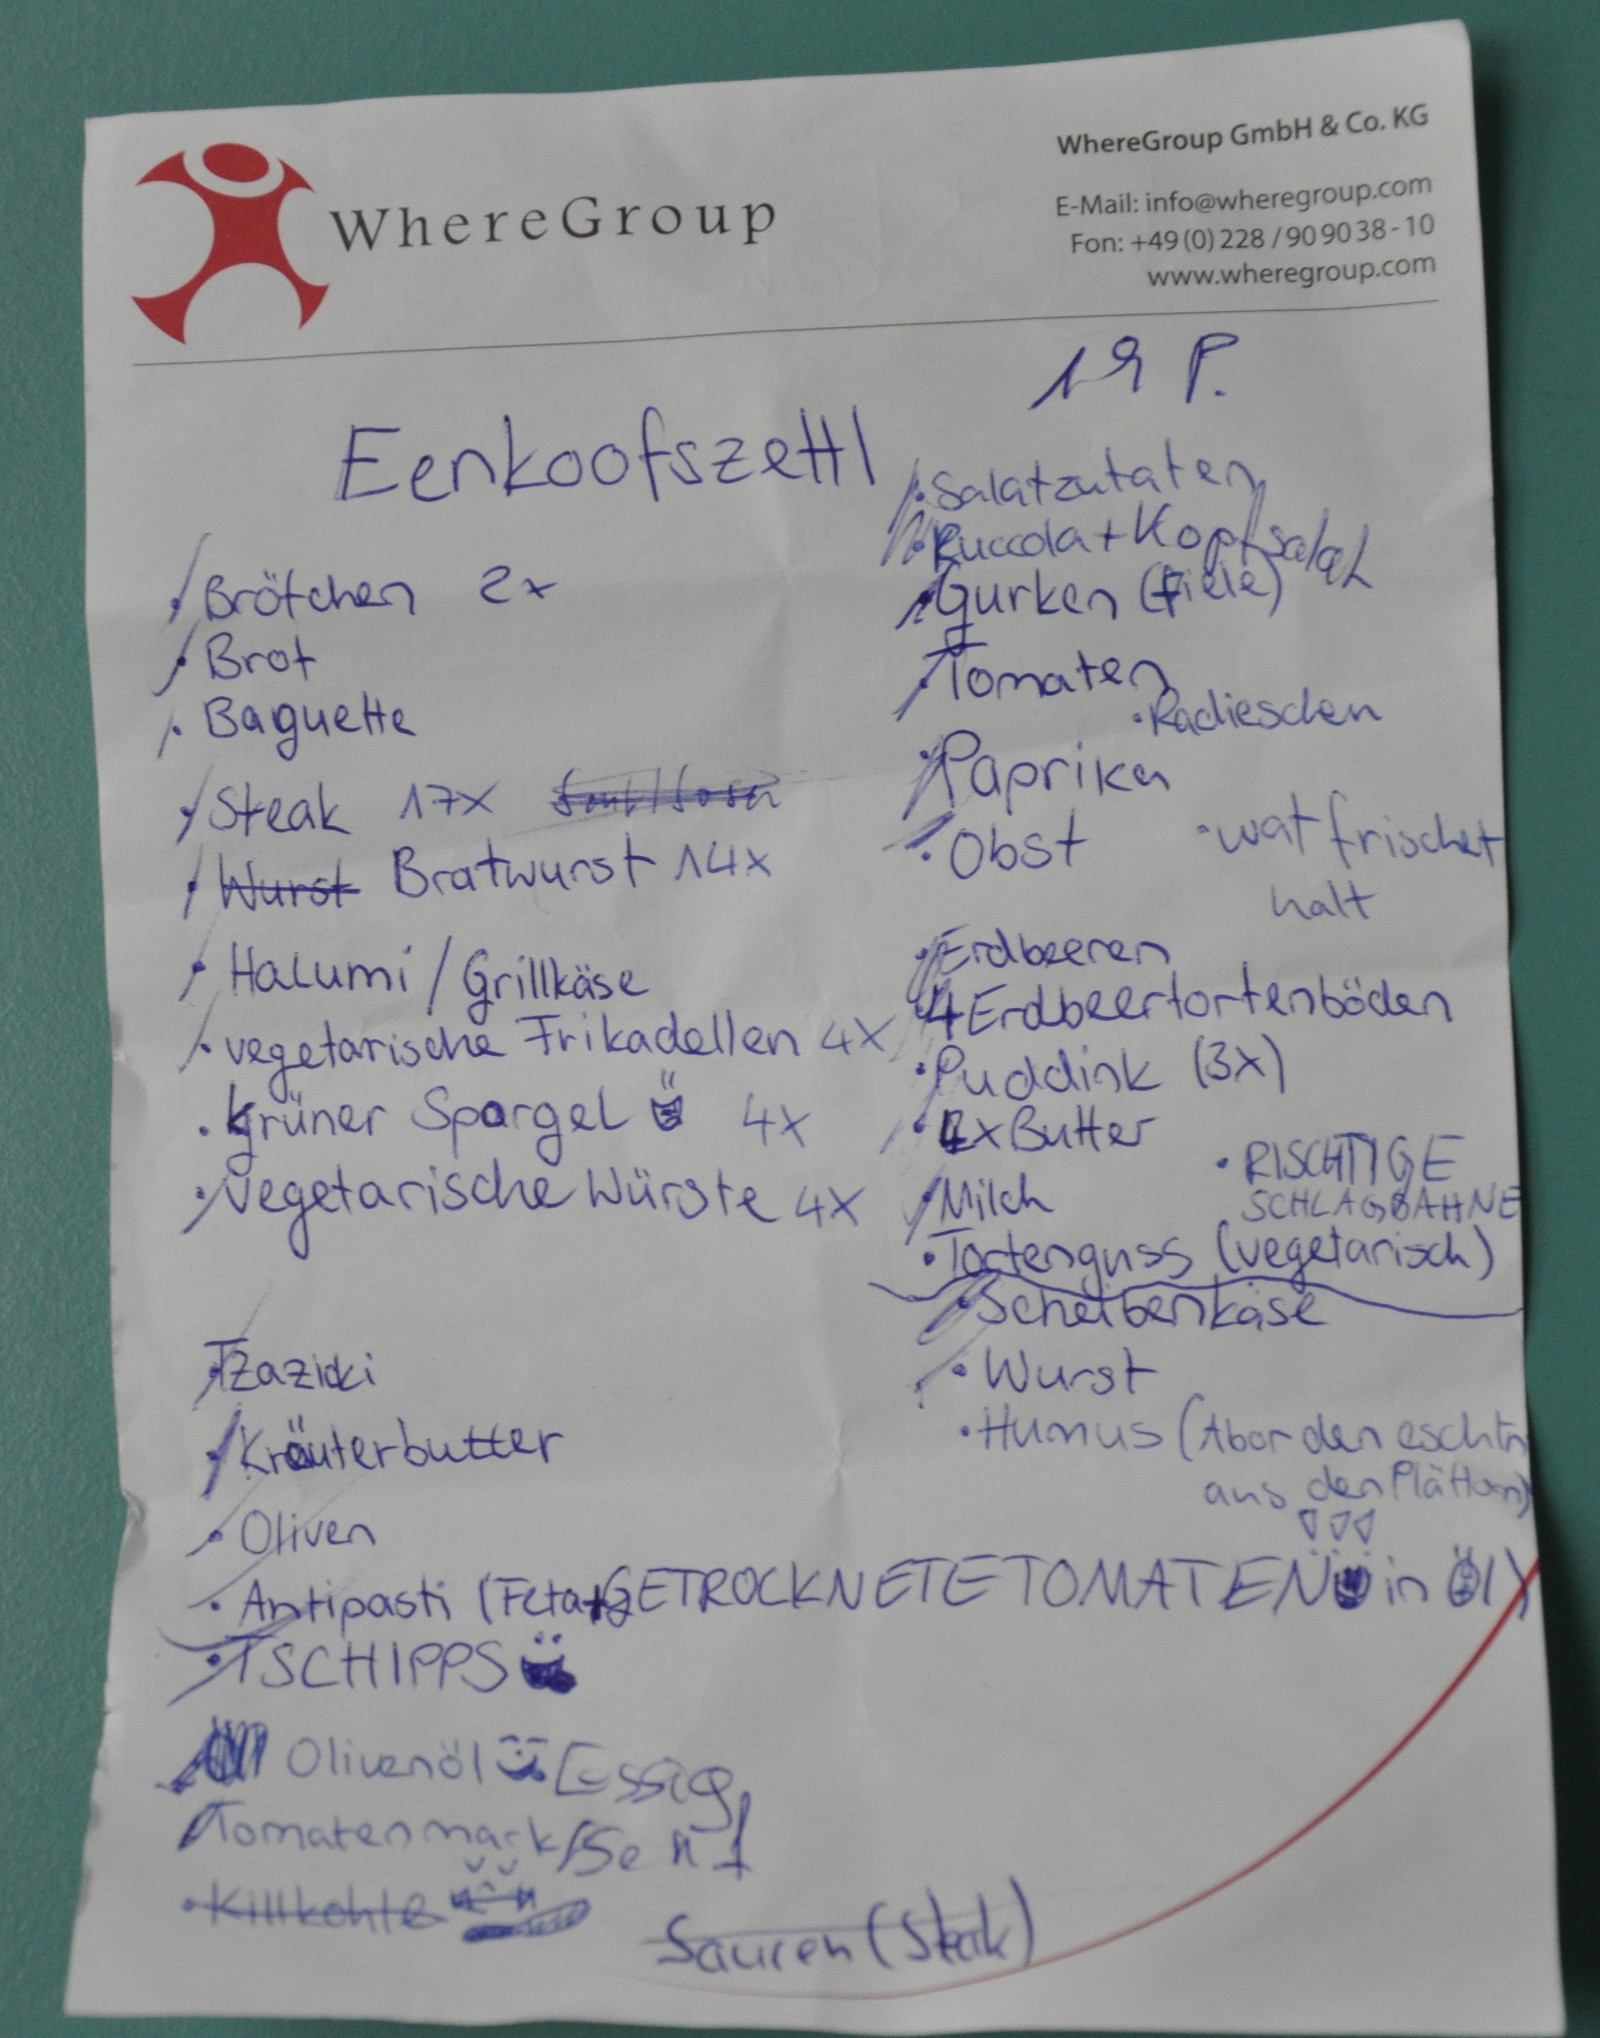 WhereGroup
WhereGroup GmbH & Co. KG
E-Mail: info@wheregroup.com
Fon: +49 (0) 228 / 90 90 38 - 10
www.wheregroup.com
19 P.
Eenkoofszettl
Brötchen 2x
Brot
Baguette
Steak 17x
Wurst Bratwurst 14x
Halumi / Grillkäse
vegetarische Frikadellen 4x
grüner Spargel 4x
vegetarische Würste 4x
Tzazicki
Kräuterbutter
Oliven
Antipasti (Feta + GETROCKNETE TOMATEN in Öl)
TSCHIPPS
Olivenöl Essig
Tomatenmark / Senf
Killkohle
Sauren (Steak)
Salatzutaten
Ruccola + Kopfsalat
Gurken (fiele)
Tomaten
Radieschen
Paprika
Obst
wat frischet
halt
Erdbeeren
4 Erdbeertortenböden
Puddink (3x)
4x Butter
RISCHTIGE
SCHLAGSAHNE
Milch
Tortenguss (vegetarisch)
Scheibenkäse
Wurst
Humus (Abor den eschtn
aus den Plättorn)